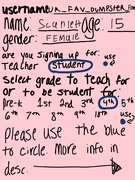 username UR_FAV_DUMPSTER_
name Scarlett age: 15
gender: FEMALE
are you signing up for use
teacher student
Select grade to teach for
or to be student for:
pre-k 1st 2nd 3rd 4th 5th
6th 7th 8th 9th use
Please use the blue
to circle. more info in
desc.